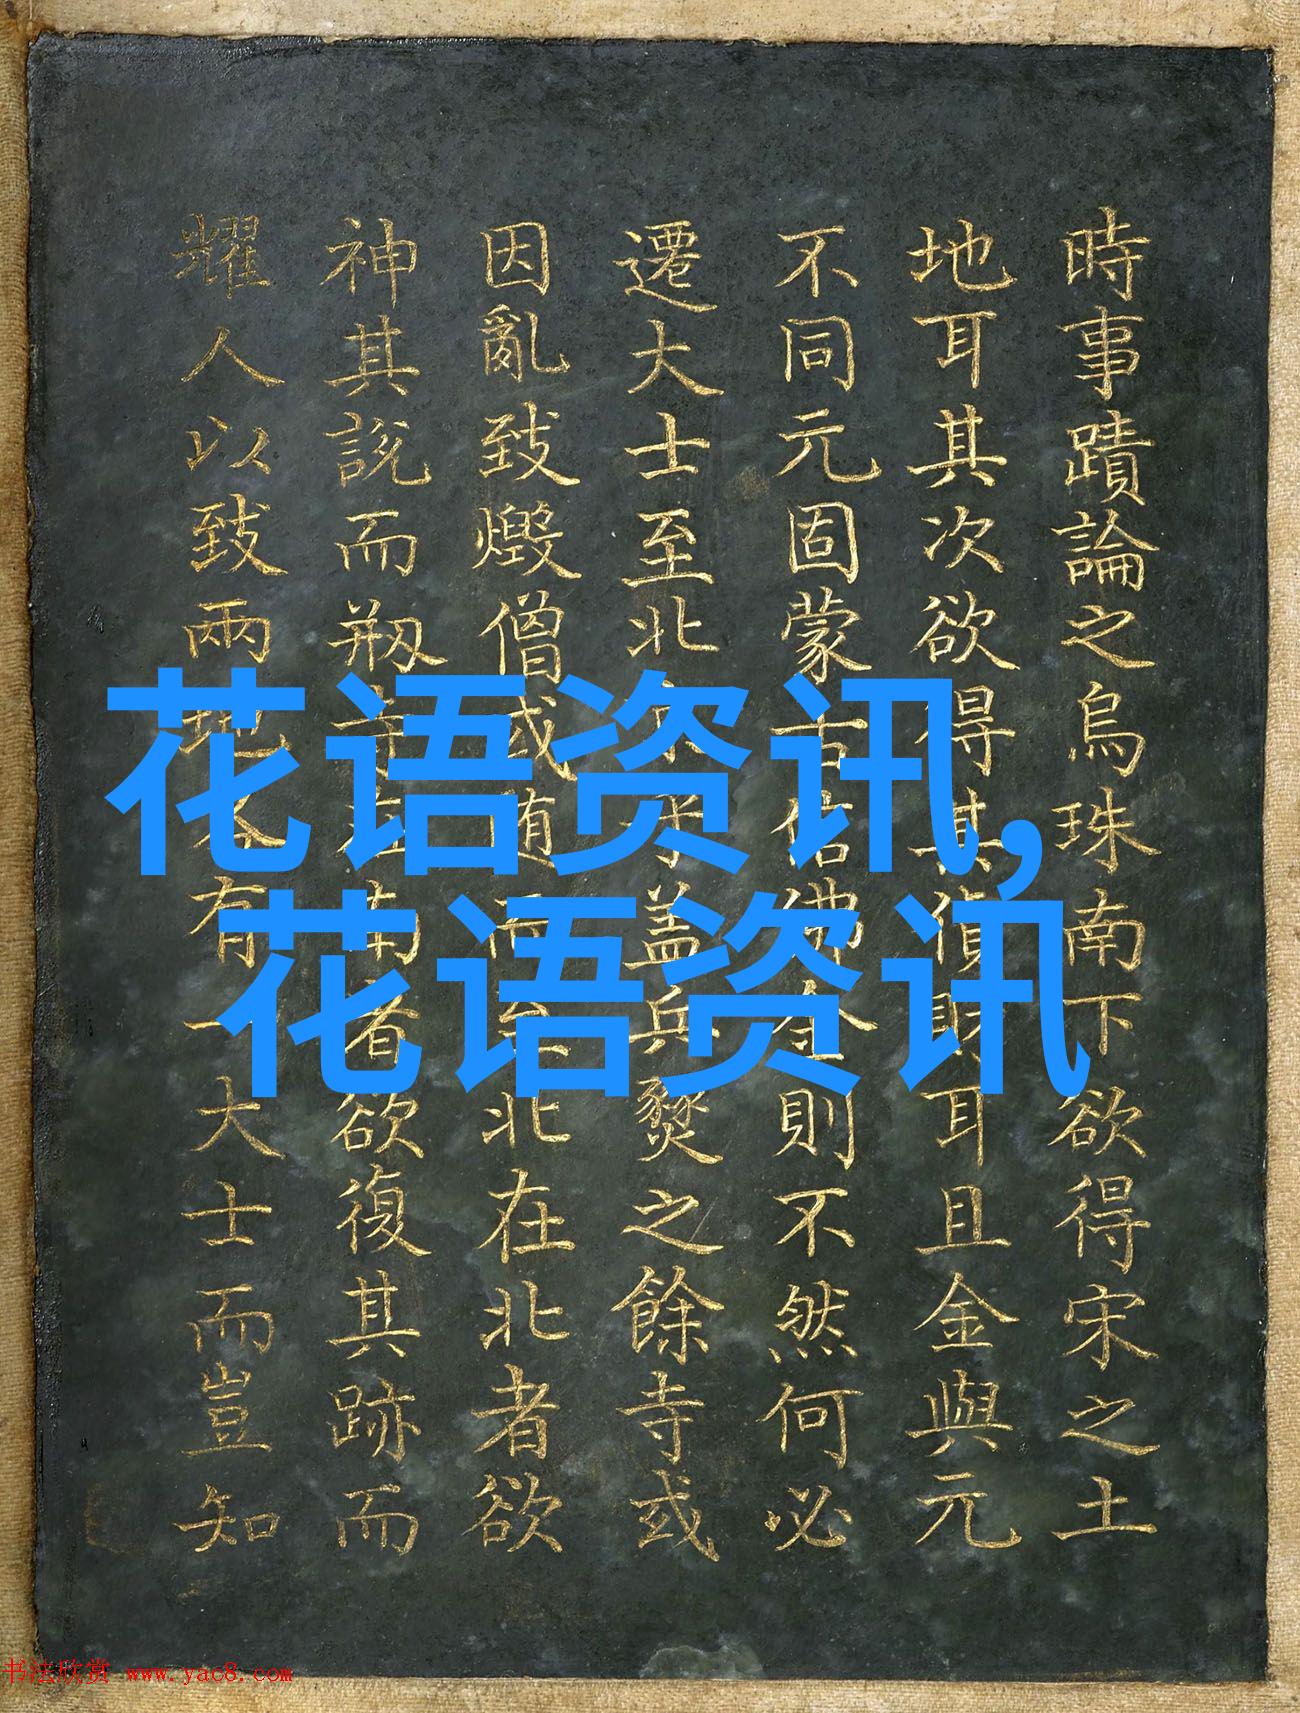 時事蹟論之烏珠南下欲得宋之土
地耳其次欲得其償財耳且金與元
不同元固蒙古信佛金則不然何必
遷大士至北京乎盖兵燹之餘寺或
因亂致燬僧或随而至北在北者欲
神其說而剏寺在南者欲復其跡而
耀人以致兩地各有一大士而豈知
花语资讯,
花语资讯
书法欣赏 www.yac8.com